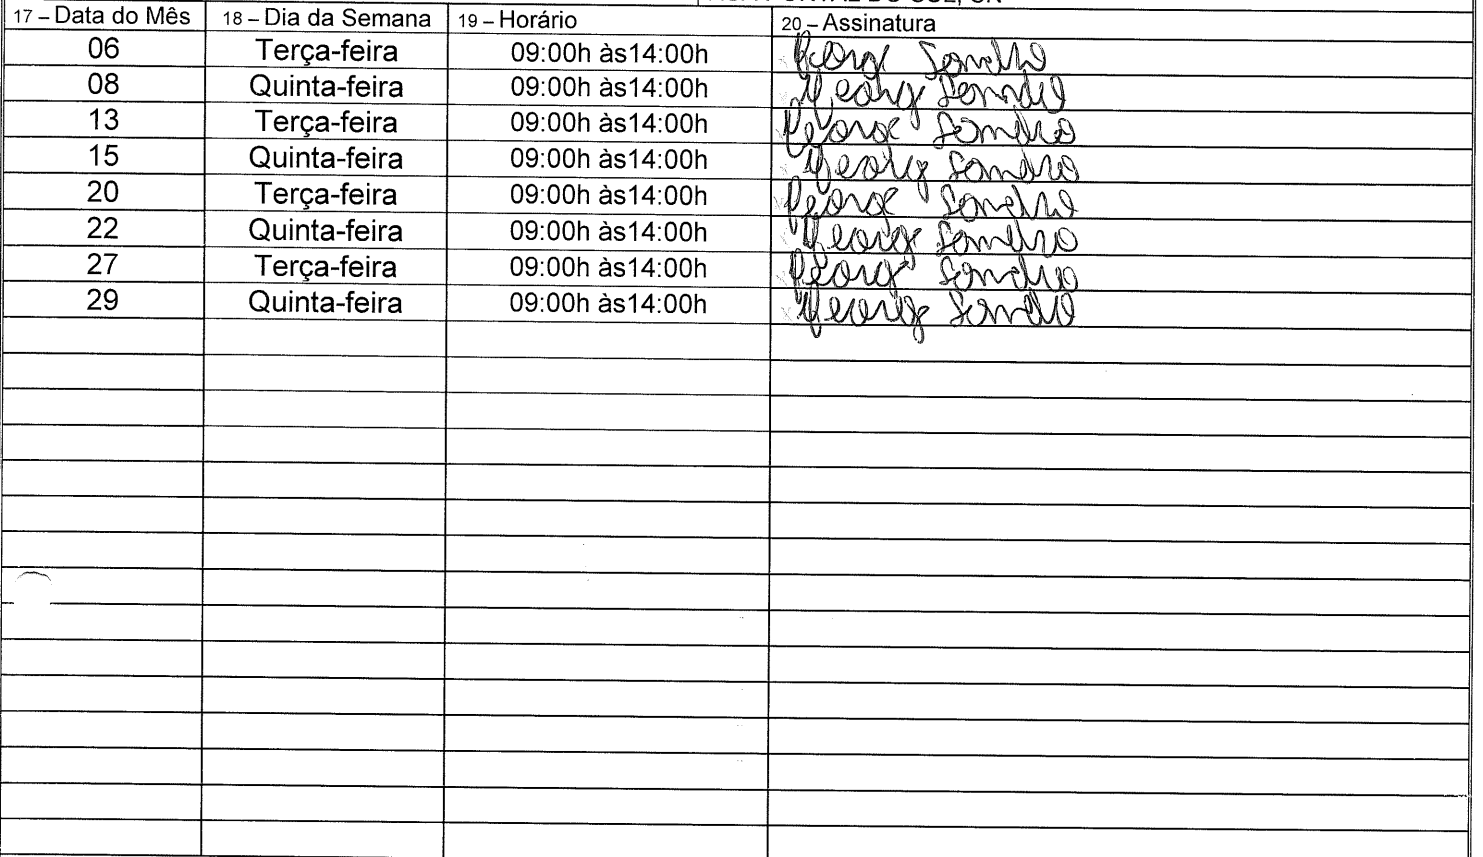 17 – Data do Mês 18 – Dia da Semana 19 – Horário 20 – Assinatura
06 Terça-feira 09:00h às14:00h George Sandro
08 Quinta-feira 09:00h às14:00h George Sandro
13 Terça-feira 09:00h às14:00h George Sandro
15 Quinta-feira 09:00h às14:00h George Sandro
20 Terça-feira 09:00h às14:00h George Sandro
22 Quinta-feira 09:00h às14:00h George Sandro
27 Terça-feira 09:00h às14:00h George Sandro
29 Quinta-feira 09:00h às14:00h George Sandro